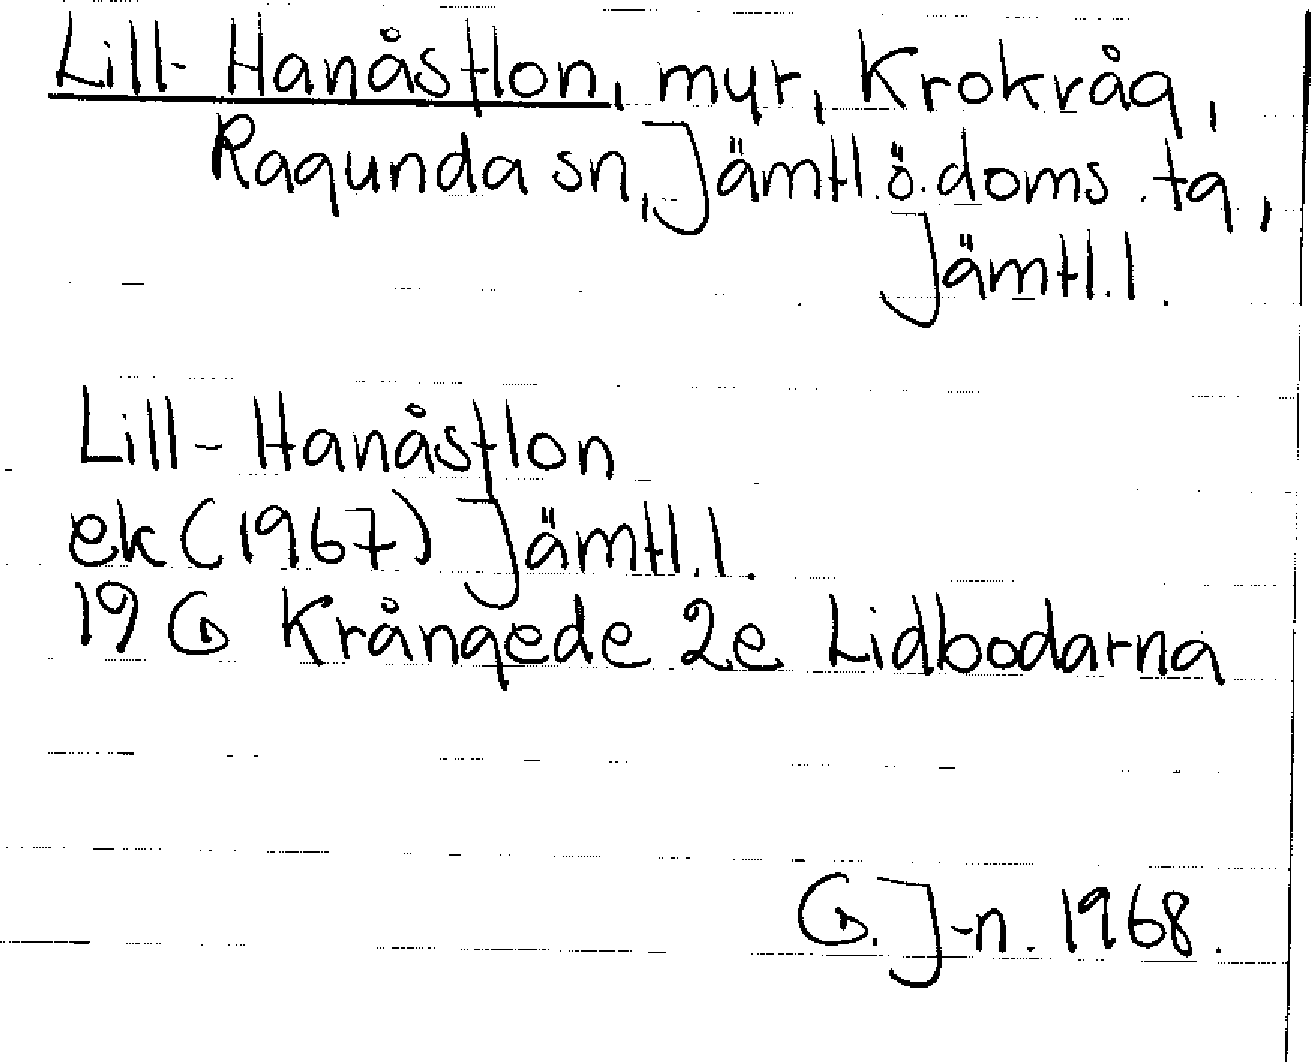 Lill-Hanåsflon, myr, Krokvåg,
Ragunda sn, Jämtl.ö.doms.tg,
Jämtl.l.
Lill-Hanåsflon
ek (1967) Jämtl.l.
19 G Krångede 2e Lidbodarna
G. J-n. 1968.